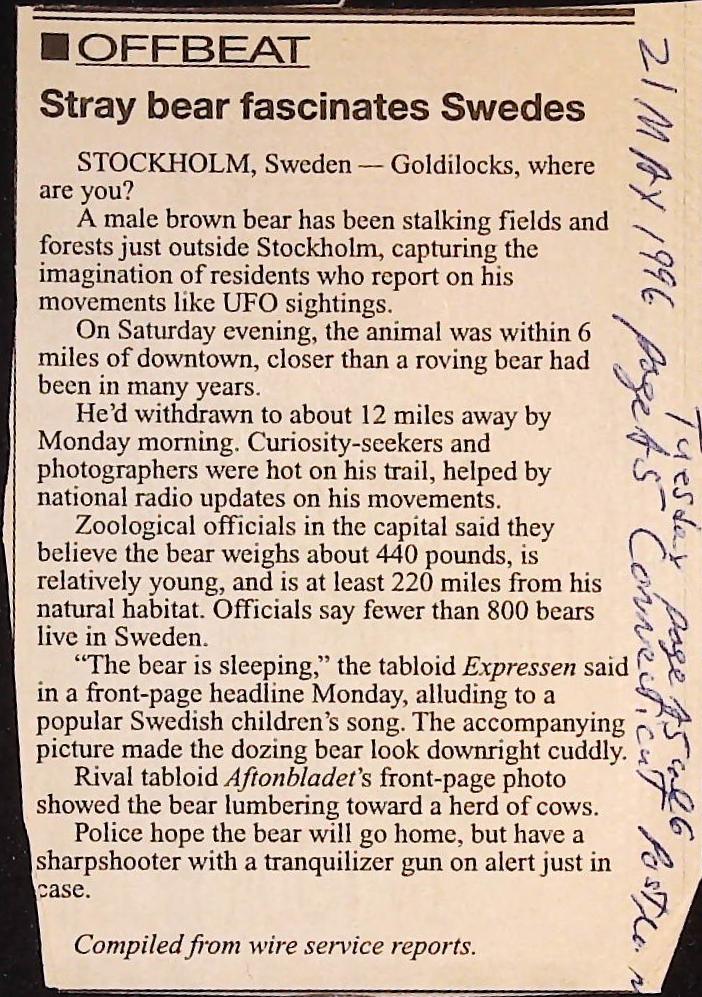 OFFBEAT
Stray bear fascinates Swedes
STOCKHOLM, Sweden — Goldilocks, where
are you?
A male brown bear has been stalking fields and
forests just outside Stockholm, capturing the
imagination of residents who report on his
movements like UFO sightings.
On Saturday evening, the animal was within 6
miles of downtown, closer than a roving bear had
been in many years.
He'd withdrawn to about 12 miles away by
Monday morning. Curiosity-seekers and
photographers were hot on his trail, helped by
national radio updates on his movements.
Zoological officials in the capital said they
believe the bear weighs about 440 pounds, is
relatively young, and is at least 220 miles from his
natural habitat. Officials say fewer than 800 bears
live in Sweden.
“The bear is sleeping,” the tabloid Expressen said
in a front-page headline Monday, alluding to a
popular Swedish children's song. The accompanying
picture made the dozing bear look downright cuddly.
Rival tabloid Aftonbladet's front-page photo
showed the bear lumbering toward a herd of cows.
Police hope the bear will go home, but have a
sharpshooter with a tranquilizer gun on alert just in
case.
Compiled from wire service reports.
21 MAY 1996 page A5 Connecticut Post
Tuesday page A5